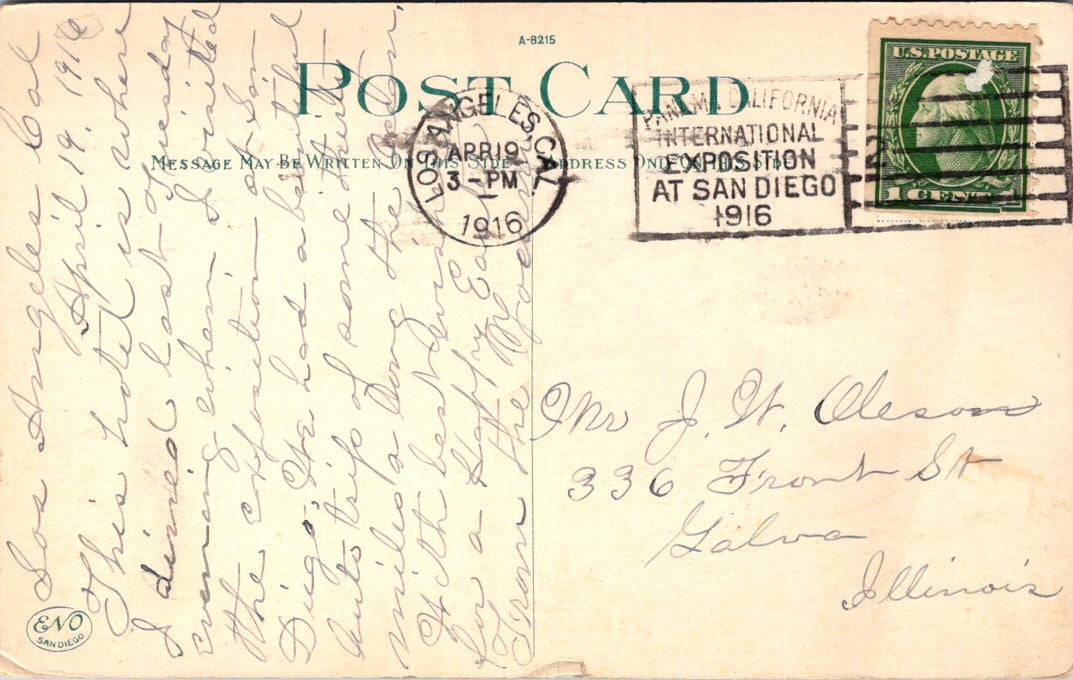 A-8215
POST CARD
MESSAGE MAY BE WRITTEN ON THIS SIDE
ADDRESS ONLY ON THIS SIDE
LOS ANGELES, CAL.
APR 19
3 - PM
1916
PANAMA CALIFORNIA
INTERNATIONAL
EXPOSITION
AT SAN DIEGO
1916
2
U.S. POSTAGE
1 CENT 1
Los Angeles Cal
April 19. 1916
This hotel is where
I dinied last Tuesday
evening when I visited
the exposition at San
Diego, We had a beautiful
Auto trip of some thirty
miles along the Ocean.
With best wishes
for a Happy Easter
From the
Mr J. W. Oleson
336 Front St
Galva
Illinois
ENO
SAN DIEGO